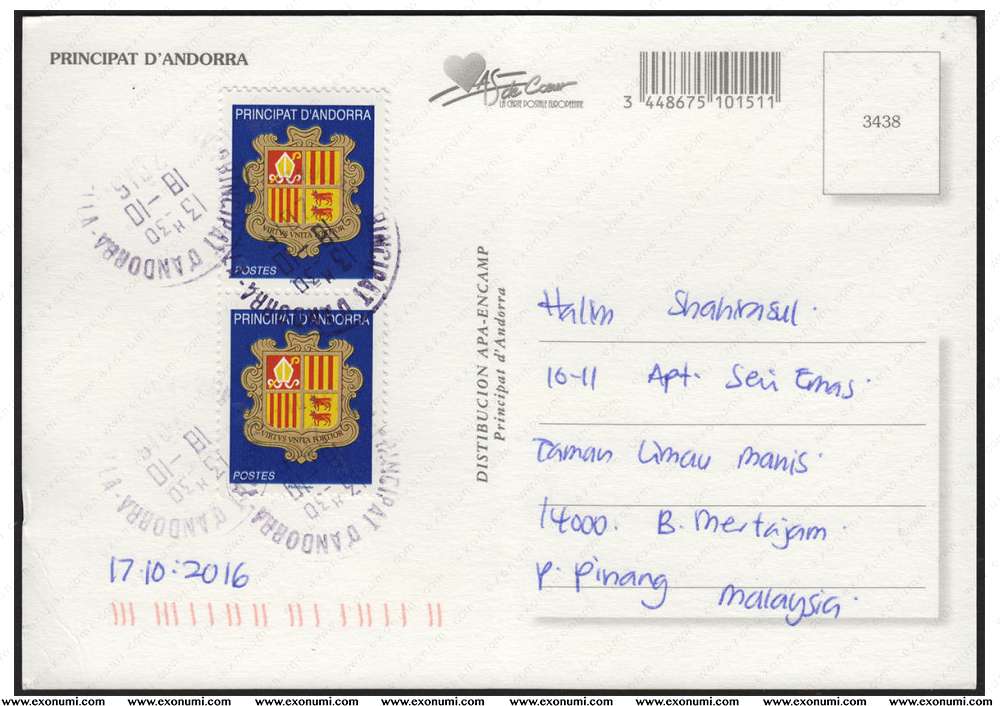 PRINCIPAT D'ANDORRA
AS de Cœur
LA CARTE POSTALE EUROPEENNE
3 448675 101511
3438
PRINCIPAT D'ANDORRA
VIRTVS VNITA FORTIOR
POSTES
PRINCIPAT D'ANDORRA
VIRTVS VNITA FORTIOR
POSTES
PRINCIPAT D'ANDORRA
13 H 30
18 -10
PRINCIPAT D'ANDORRA
13 H 30
18 -10
PRINCIPAT D'ANDORRA
13 H 30
18 -10
PRINCIPAT D'ANDORRA
H 30
DISTIBUCION APA-ENCAMP
Principat d'Andorra
Halim Shahirasul.
10-11 Apt. Seri Emas.
Taman Limau Manis.
14000. B. Mertajam.
P. Pinang
Malaysia.
17.10.:2016
www.exonumi.com www.exonumi.com www.exonumi.com www.exonumi.com www.exonumi.com www.exonumi.com www.exonumi.com www.exonumi.com